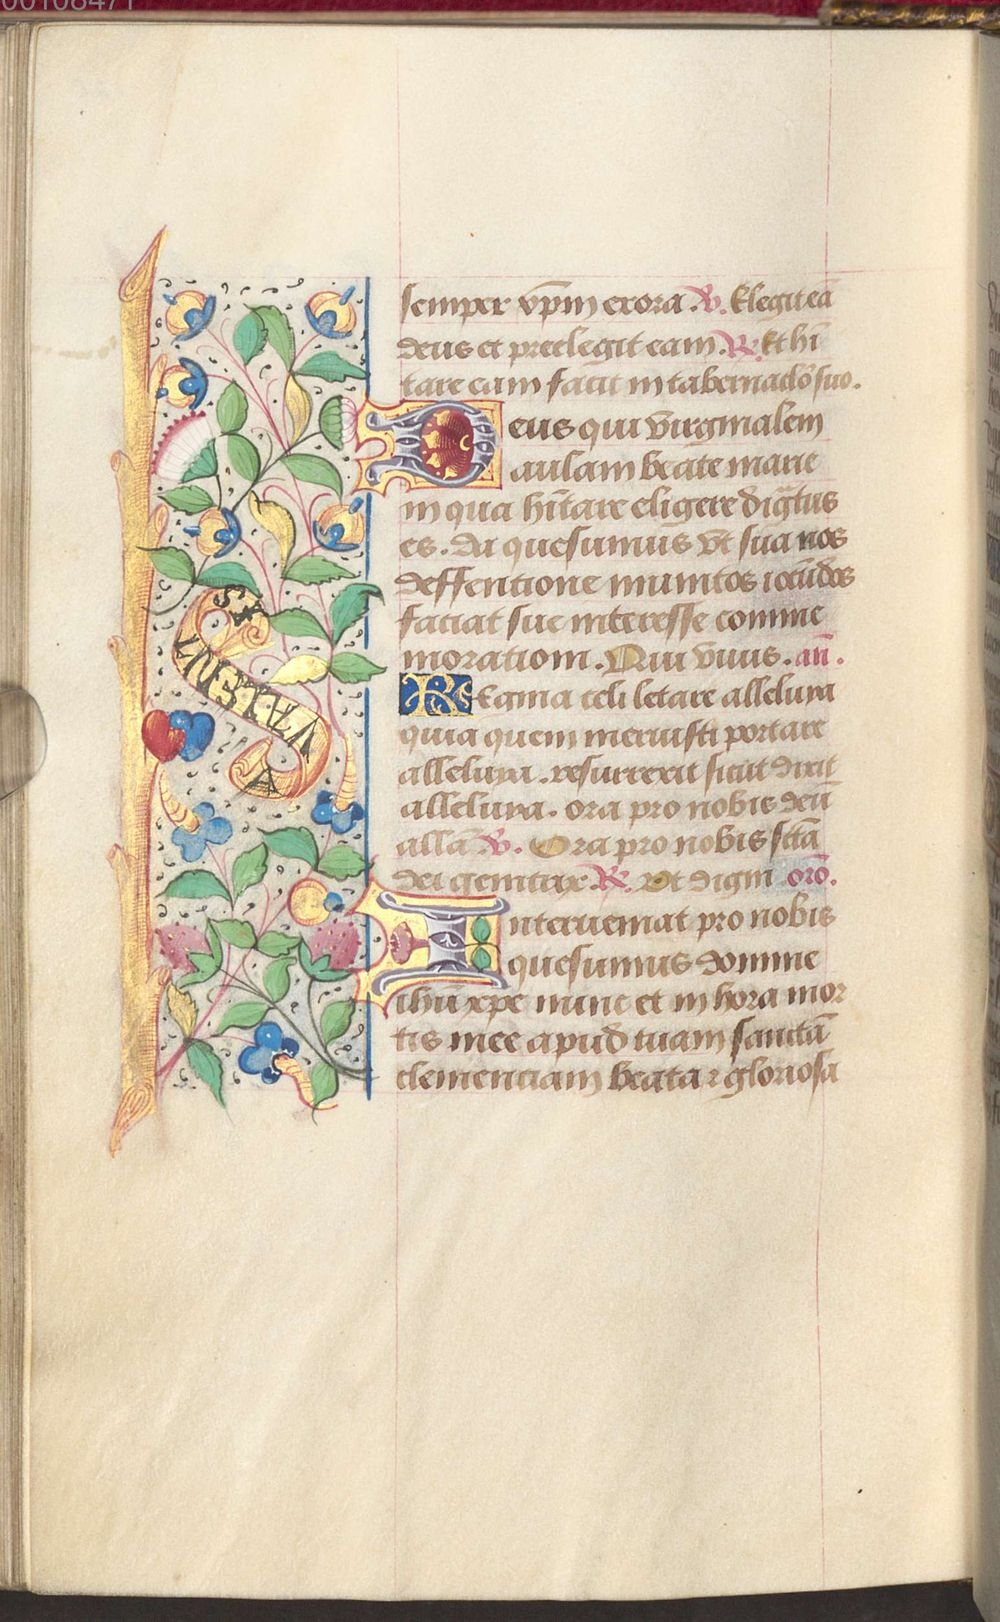 00108471
semper xp̄m exora. ℣. Elegit eā
deus et preelegit eam. ℟. Et hī
tare eam facit in tabernaclō suo.
Deus qui virginalem
aulam beate marie
in qua hītare eligere dīgtus
es. da quesumus vt sua nos
deffentione munitos iocūdos
faciat sue interesse comme
moratiom. Qui viuis. añ.
Regina celi letare alleluya
quia quem meruisti portare
alleluya. resurrexit sicut dixit
alleluya. ora pro nobis deū
allā ℣. Ora pro nobis sctā
dei genitrix ℟. Vt digni orō.
Interueniat pro nobis
quesumus domine
ihū xpe nunc et in hora mor
tis mee apud tuam sanctā
clementiam beata ⁊ gloriosa